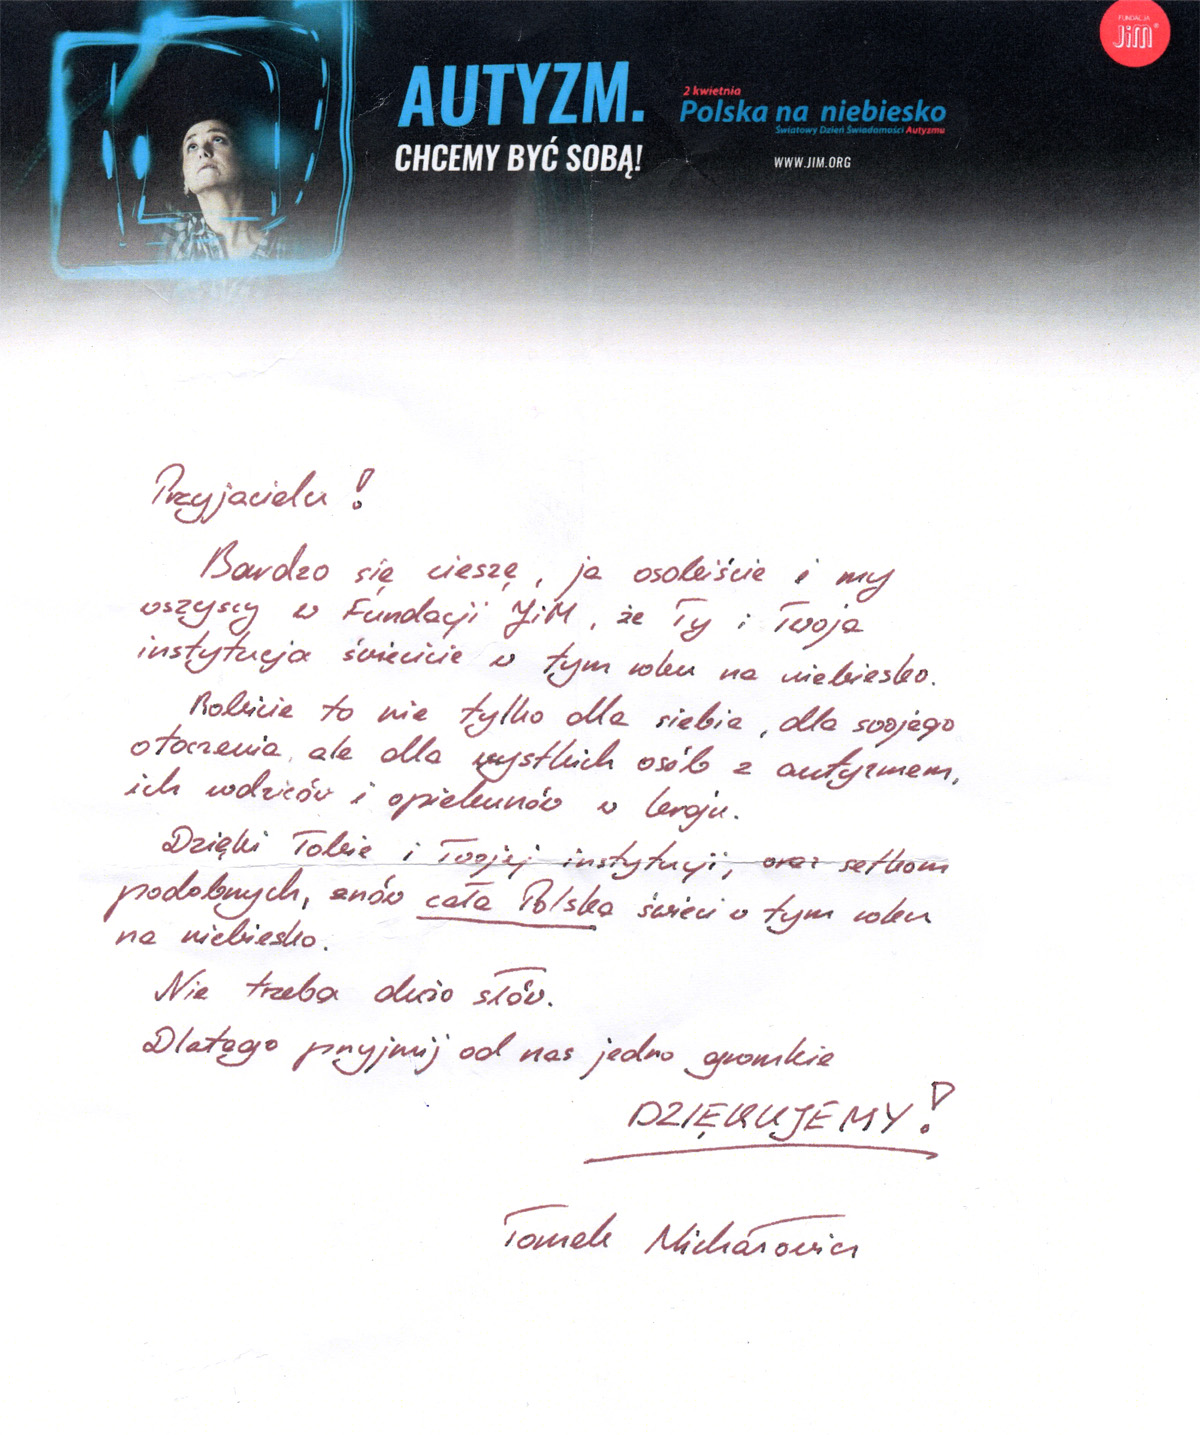 FUNDACJA
JiM®
AUTYZM.
CHCEMY BYĆ SOBĄ!
2 kwietnia
Polska na niebiesko
Światowy Dzień Świadomości Autyzmu
WWW.JIM.ORG
Przyjacielu!
Bardzo się cieszę, ja osobiście i my
wszyscy w Fundacji JiM, że Ty i Twoja
instytucja świecicie w tym roku na niebiesko.
Robicie to nie tylko dla siebie, dla swojego
otoczenia, ale dla wszystkich osób z autyzmem,
ich rodziców i opiekunów w kraju.
Dzięki Tobie i Twojej instytucji, oraz setkom
podobnych, znów cała Polska świeci w tym roku
na niebiesko.
Nie trzeba dużo słów.
Dlatego przyjmij od nas jedno gromkie
DZIĘKUJEMY!
Tomek Michałowicz